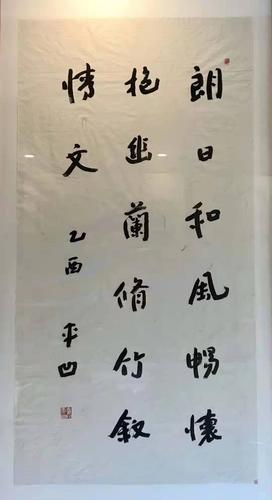 朗日和风畅懷
抱幽蘭脩竹敘
情文 乙酉 平凹